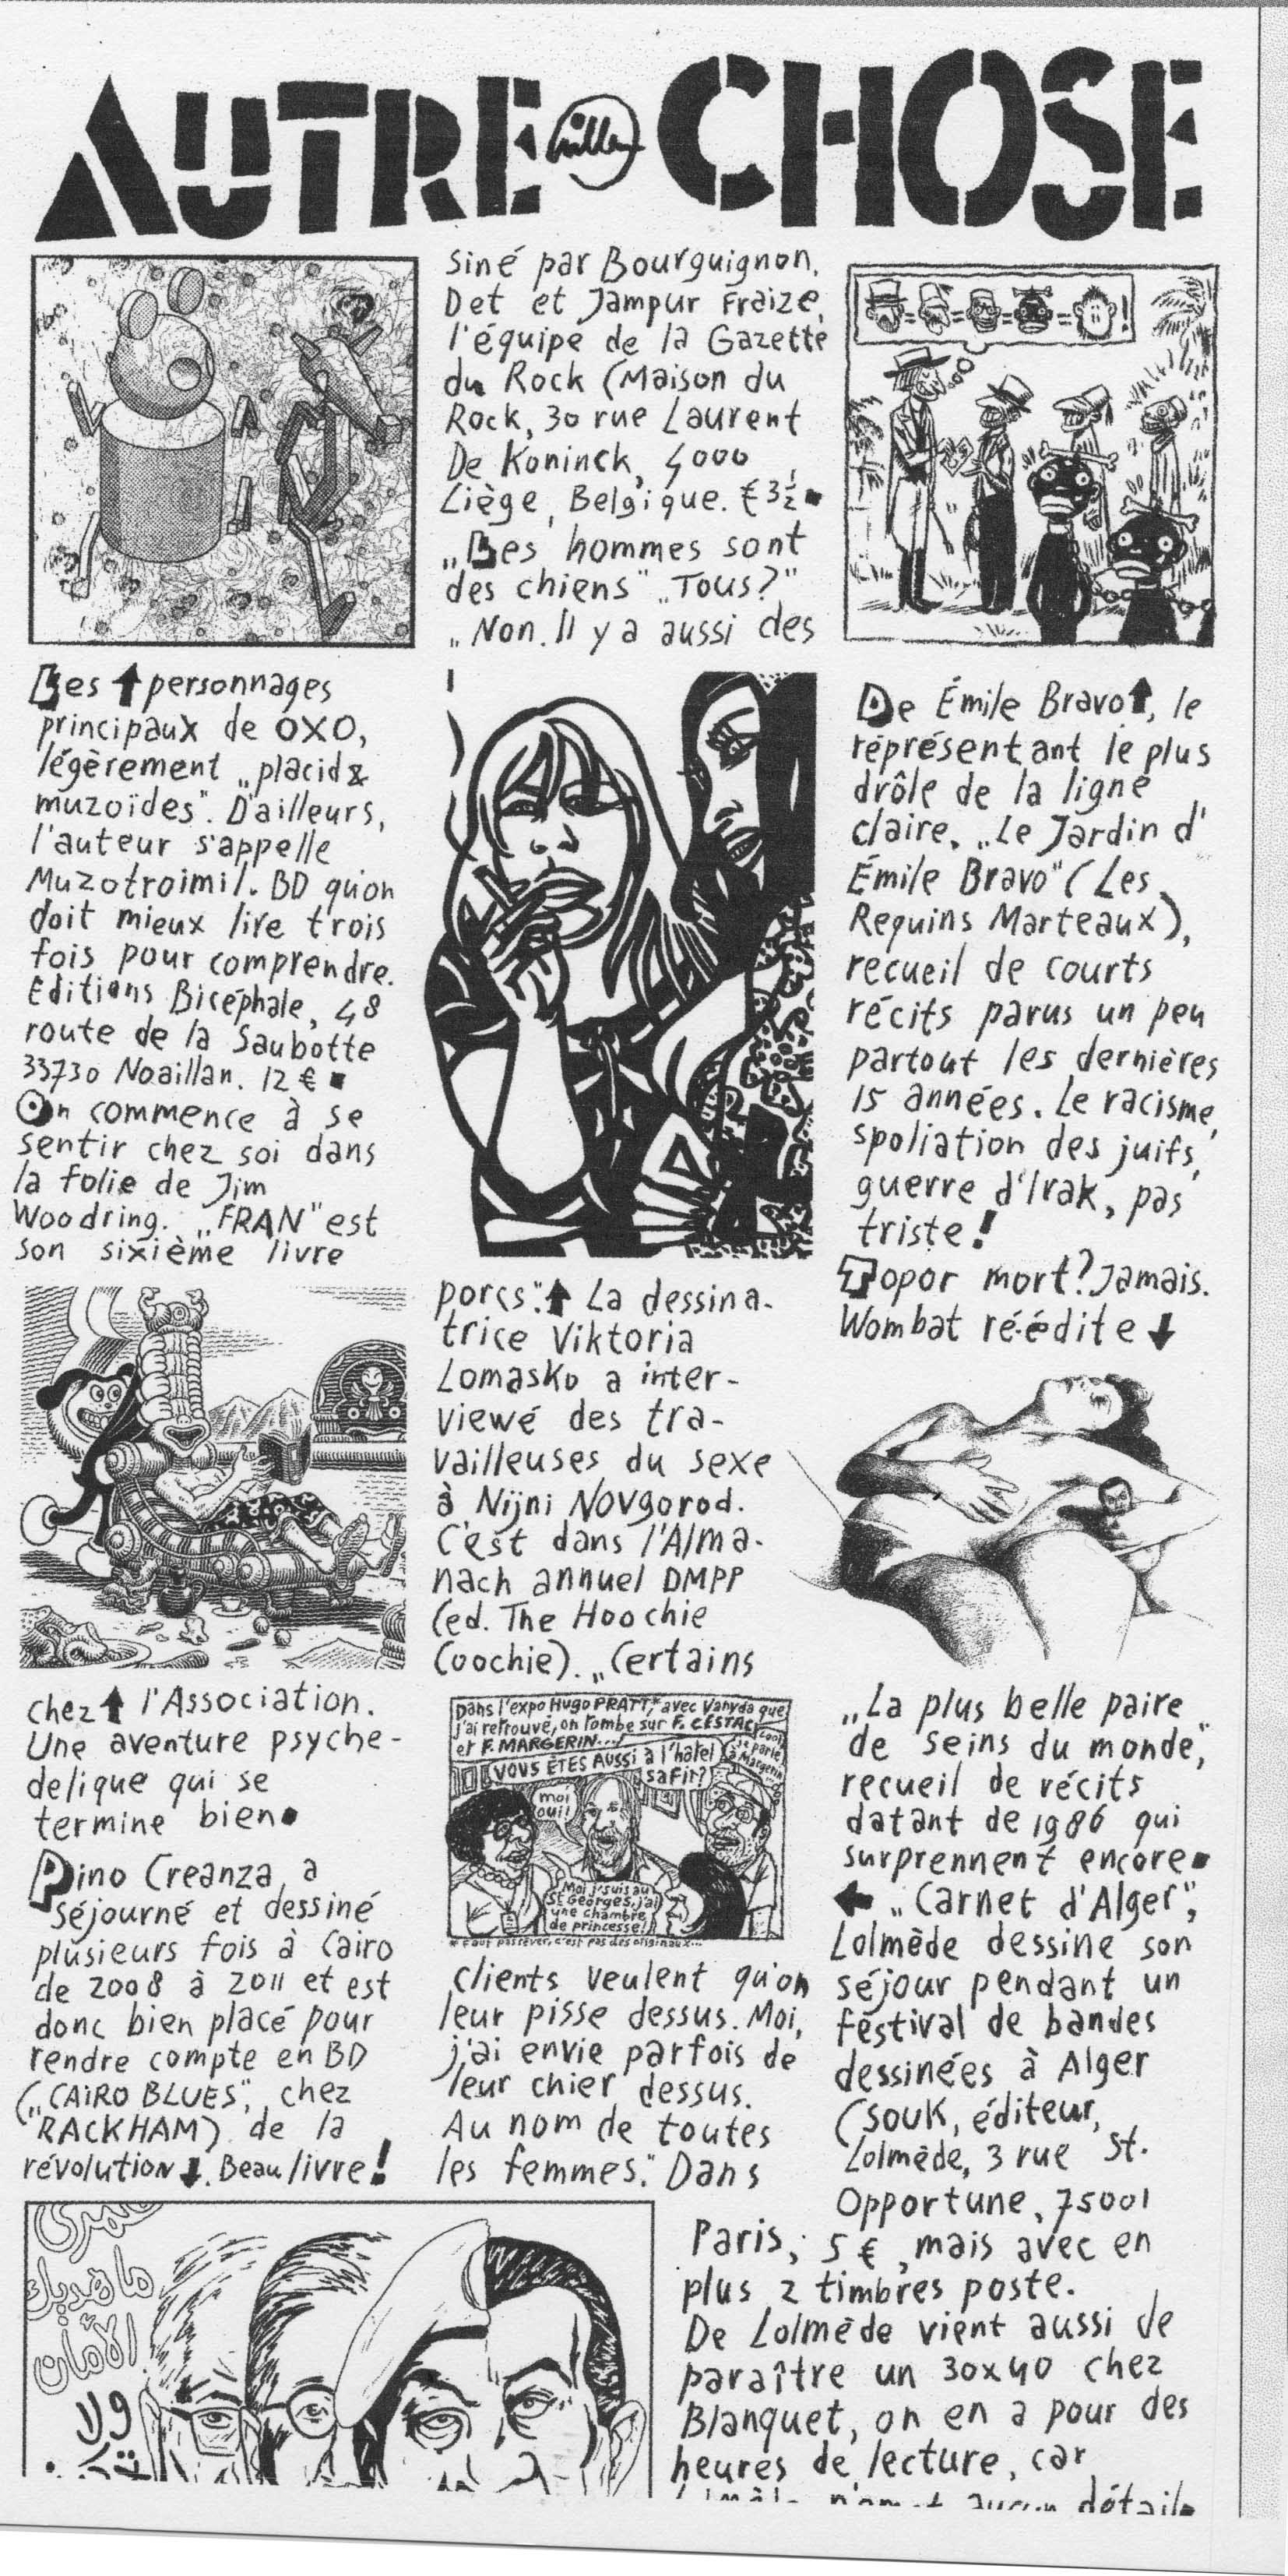 AUTRE CHOSE
Les ↑ personnages
principaux de OXO,
légèrement „placid &
muzoïdes". D'ailleurs,
l'auteur s'appelle
Muzotroimil. BD qu'on
doit mieux lire trois
fois pour comprendre.
Editions Bicéphale, 48
route de la Saubotte
33730 Noaillan. 12 € ▪
On commence à se
sentir chez soi dans
la folie de Jim
Woodring. „FRAN" est
son sixième livre
chez ↑ l'Association.
Une aventure psyche-
delique qui se
termine bien▪
Pino Creanza a
séjourné et dessiné
plusieurs fois à Cairo
de 2008 à 2011 et est
donc bien placé pour
rendre compte en BD
(„CAIRO BLUES", chez
RACKHAM) de la
révolution ↓. Beau livre!
ما هديك
الأمان
ولا
siné par Bourguignon,
Det et Jampur Fraize,
l'équipe de la Gazette
du Rock (Maison du
Rock, 30 rue Laurent
De Koninck, 4000
Liège, Belgique. € 3½▪
„Les hommes sont
des chiens" „Tous?"
„Non. Il y a aussi des
porcs". ↑ La dessina-
trice Viktoria
Lomasko a inter-
viewé des tra-
vailleuses du sexe
à Nijni Novgorod.
C'est dans l'Alma-
nach annuel DMPP
(ed. The Hoochie
Coochie). „Certains
Dans l'expo Hugo PRATT,* avec Vanyda que
j'ai retrouvé, on tombe sur F. CESTAC
et F. MARGERIN...
VOUS ÊTES AUSSI à l'hotel
safir?
cool
je parle
à Margerin
moi
oui!
Moi j'suis au
St Georges, j'ai
une chambre
de princesse!
* Faut pas rêver, c'est pas des originaux...
clients veulent qu'on
leur pisse dessus. Moi,
j'ai envie parfois de
leur chier dessus.
Au nom de toutes
les femmes." Dans
!
De Émile Bravo ↑, le
représentant le plus
drôle de la ligne
claire, „Le Jardin d'
Émile Bravo" (Les
Requins Marteaux),
recueil de courts
récits parus un peu
partout les dernières
15 années. Le racisme,
spoliation des juifs,
guerre d'Irak, pas
triste!
Topor mort? Jamais.
Wombat ré-édite ↓
„La plus belle paire
de seins du monde",
recueil de récits
datant de 1986 qui
surprennent encore▪
← „Carnet d'Alger",
Lolmède dessine son
séjour pendant un
festival de bandes
dessinées à Alger
(Souk, éditeur,
Lolmède, 3 rue St.
Opportune, 75001
Paris, 5 €, mais avec en
plus 2 timbres poste.
De Lolmède vient aussi de
paraître un 30x40 chez
Blanquet, on en a pour des
heures de lecture, car
aucun détail